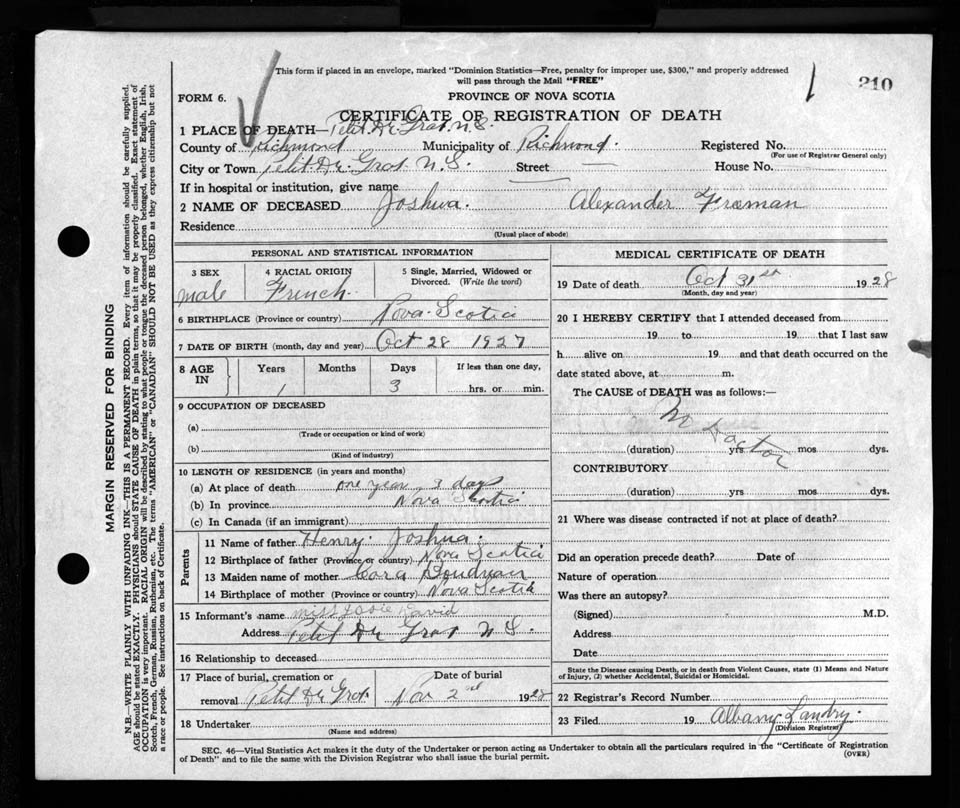 This form if placed in an envelope, marked "Dominion Statistics—Free, penalty for improper use, $300," and properly addressed
will pass through the Mail "FREE"
210
FORM 6.
PROVINCE OF NOVA SCOTIA
CERTIFICATE OF REGISTRATION OF DEATH
1 PLACE OF DEATH—Petit De Grat N.S.
County of Richmond Municipality of Richmond. Registered No.
(For use of Registrar General only)
City or Town Petit De Grat N.S. Street House No.
If in hospital or institution, give name
2 NAME OF DECEASED Joshua. Alexander Freeman
Residence
(Usual place of abode)
PERSONAL AND STATISTICAL INFORMATION
3 SEX 4 RACIAL ORIGIN 5 Single, Married, Widowed or Divorced. (Write the word)
male French.
6 BIRTHPLACE (Province or country) Nova Scotia
7 DATE OF BIRTH (month, day and year) Oct 28 1927
8 AGE IN Years Months Days If less than one day,
1 3 hrs. or min.
9 OCCUPATION OF DECEASED
(a)
(Trade or occupation or kind of work)
(b)
(Kind of industry)
10 LENGTH OF RESIDENCE (in years and months)
(a) At place of death one year 3 days
(b) In province Nova Scotia
(c) In Canada (if an immigrant)
Parents
11 Name of father Henry Joshua.
12 Birthplace of father (Province or country) Nova Scotia
13 Maiden name of mother Cora
14 Birthplace of mother (Province or country) Nova Scotia
15 Informant's name David
Address Petit De Grat N S.
16 Relationship to deceased
17 Place of burial, cremation or removal Petit De Grat. Date of burial Nov 2nd 1928
18 Undertaker
(Name and address)
MEDICAL CERTIFICATE OF DEATH
19 Date of death Oct 31st 1928
(Month, day and year)
20 I HEREBY CERTIFY that I attended deceased from
19 to 19 that I last saw
h alive on 19 and that death occurred on the
date stated above, at m.
The CAUSE of DEATH was as follows:—
No Doctor
(duration) yrs mos dys.
CONTRIBUTORY
(duration) yrs mos dys.
21 Where was disease contracted if not at place of death?
Did an operation precede death? Date of
Nature of operation
Was there an autopsy?
(Signed) M.D.
Address
Date
State the Disease causing Death, or in death from Violent Causes, state (1) Means and Nature
of Injury, (2) whether Accidental, Suicidal or Homicidal.
22 Registrar's Record Number
23 Filed 19 Albany Landry.
(Division Registrar)
SEC. 46—Vital Statistics Act makes it the duty of the Undertaker or person acting as Undertaker to obtain all the particulars required in the "Certificate of Registration
of Death" and to file the same with the Division Registrar who shall issue the burial permit.
(OVER)
MARGIN RESERVED FOR BINDING
N.B.—WRITE PLAINLY WITH UNFADING INK—THIS IS A PERMANENT RECORD. Every item of information should be carefully supplied.
AGE should be stated EXACTLY. PHYSICIANS should STATE CAUSE OF DEATH in plain terms, so that it may be properly classified. Exact statement of
OCCUPATION is very important. RACIAL ORIGIN will be described by stating to what people or tongue the deceased person belonged, whether English, Irish,
Scotch, French, German, Russian, Ruthenian, etc. The terms "AMERICAN" or "CANADIAN" SHOULD NOT BE USED as they express citizenship but not
a race or people. See instructions on back of Certificate.